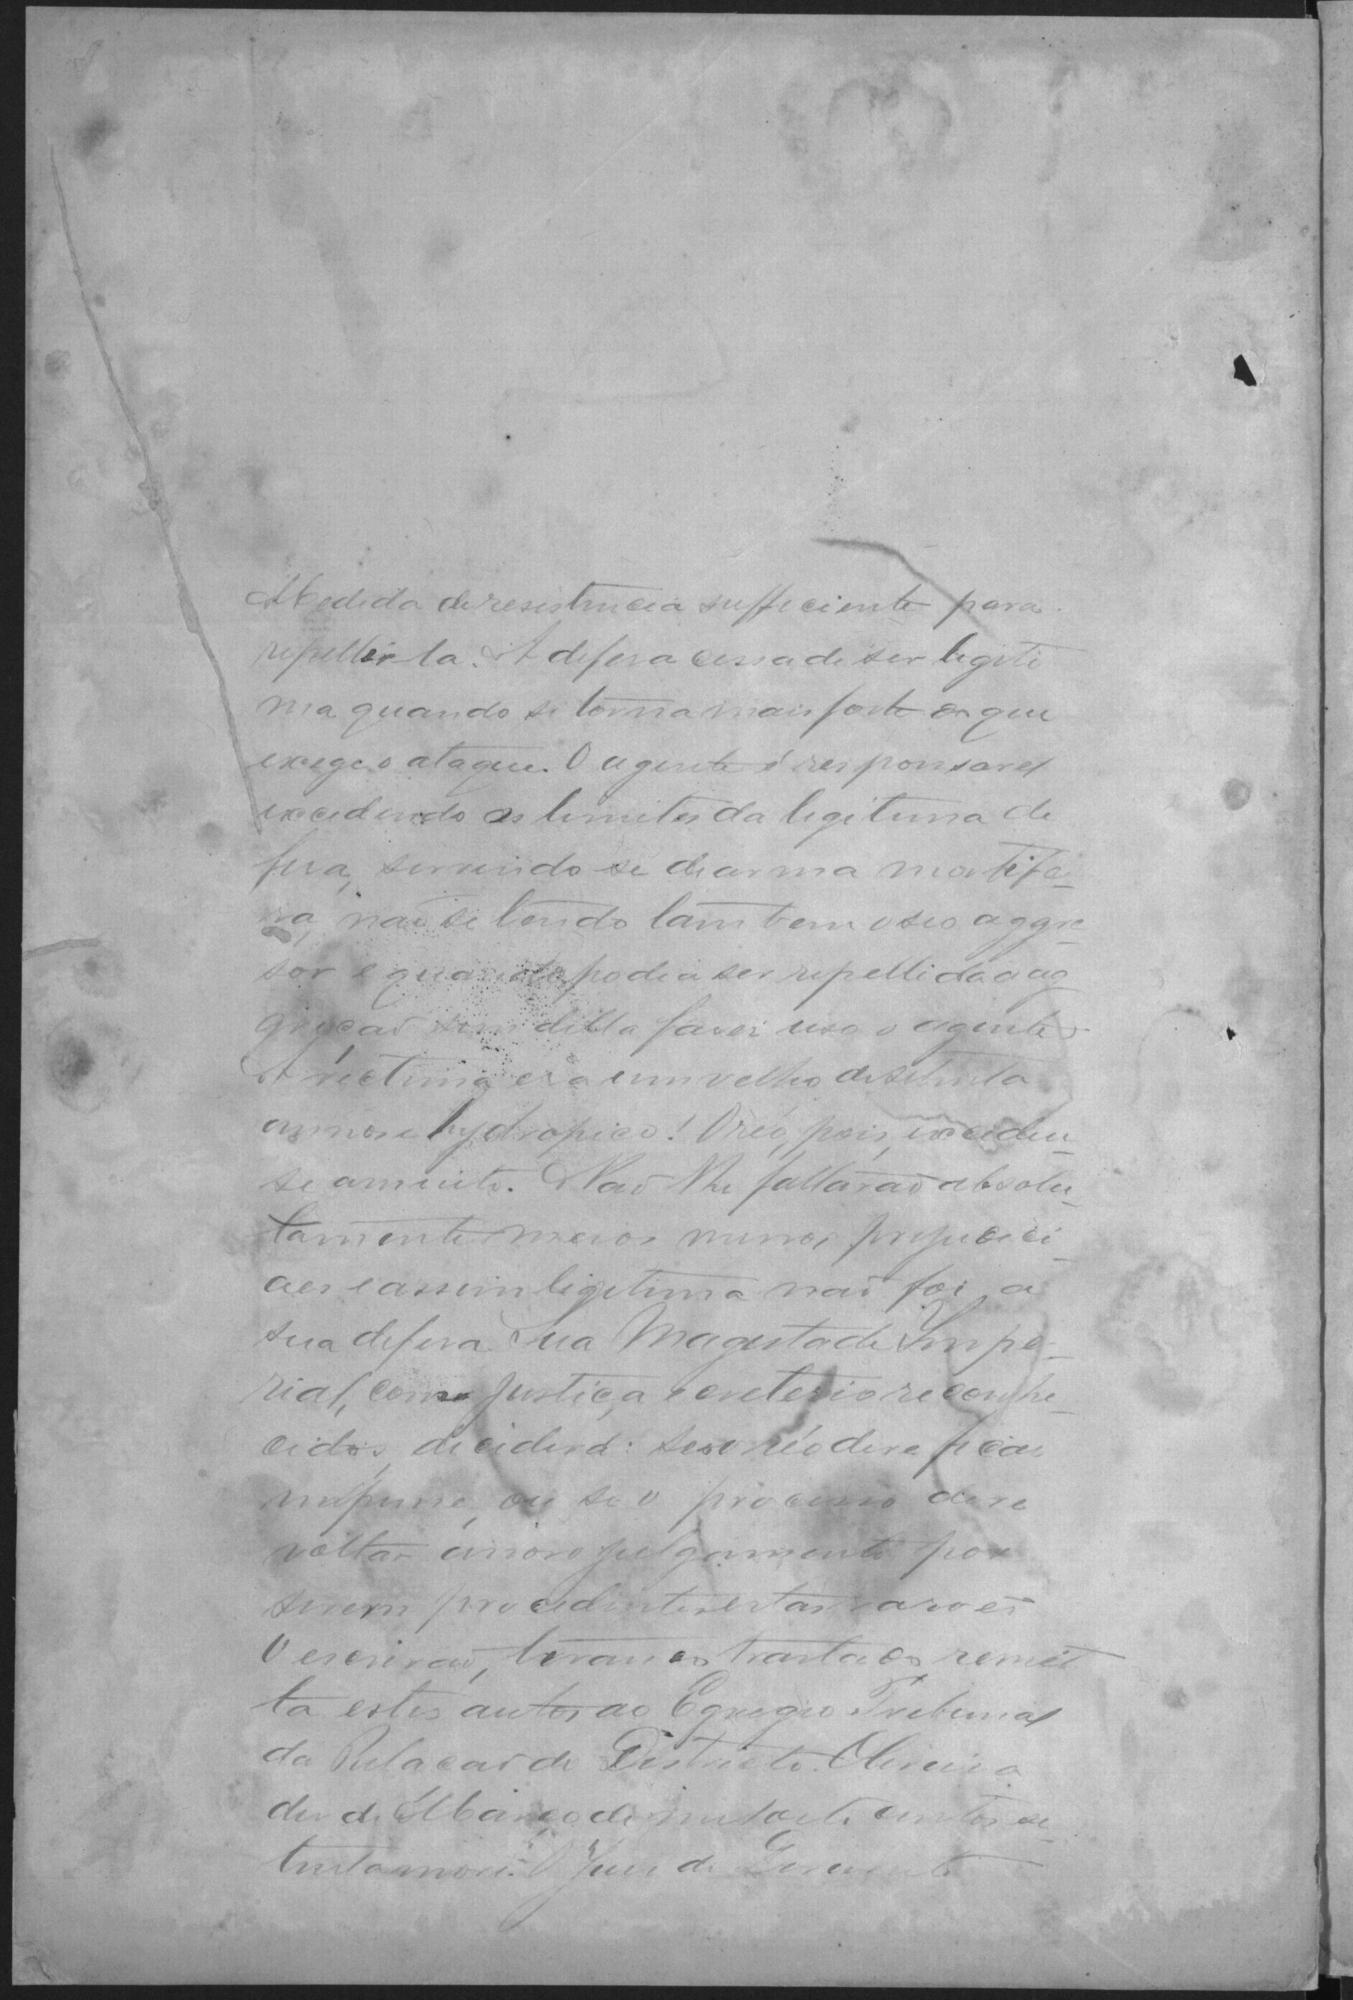 Medida de resistencia sufficiente para
repellir la. A defesa cessa de ser legiti
ma quando se torna mais forte do que
exige o ataque. O agente é responsavel
excedendo os limites da legitima de
fesa, servindo se de arma mortife-
ra, não se tendo tambem o seo aggre-
sor e quando podia ser repellida a ag
greção sem della fazer uso o agente.
A victima era um velho de setenta
annos e hydropico! O réo, pois, excedeu-
se a muito. Não lhe faltarão absolu-
tamente meios menos prejudici-
aes e assim legitima não foi a
sua defesa. Sua Magestade Impe-
rial, com a justiça e creterio reconhe-
cidos, decidirá: se o réo deve ficar
impune, ou se o processo deve
voltar á novo julgamento por
serem procedentes estas razoes
O escrivão, tirando traslado remet
ta estes autos ao Egregio Tribunal
da Relação do Districto. Oliveira
dez de Março de mil oito centos se
tenta e nove. O Juiz de Direito